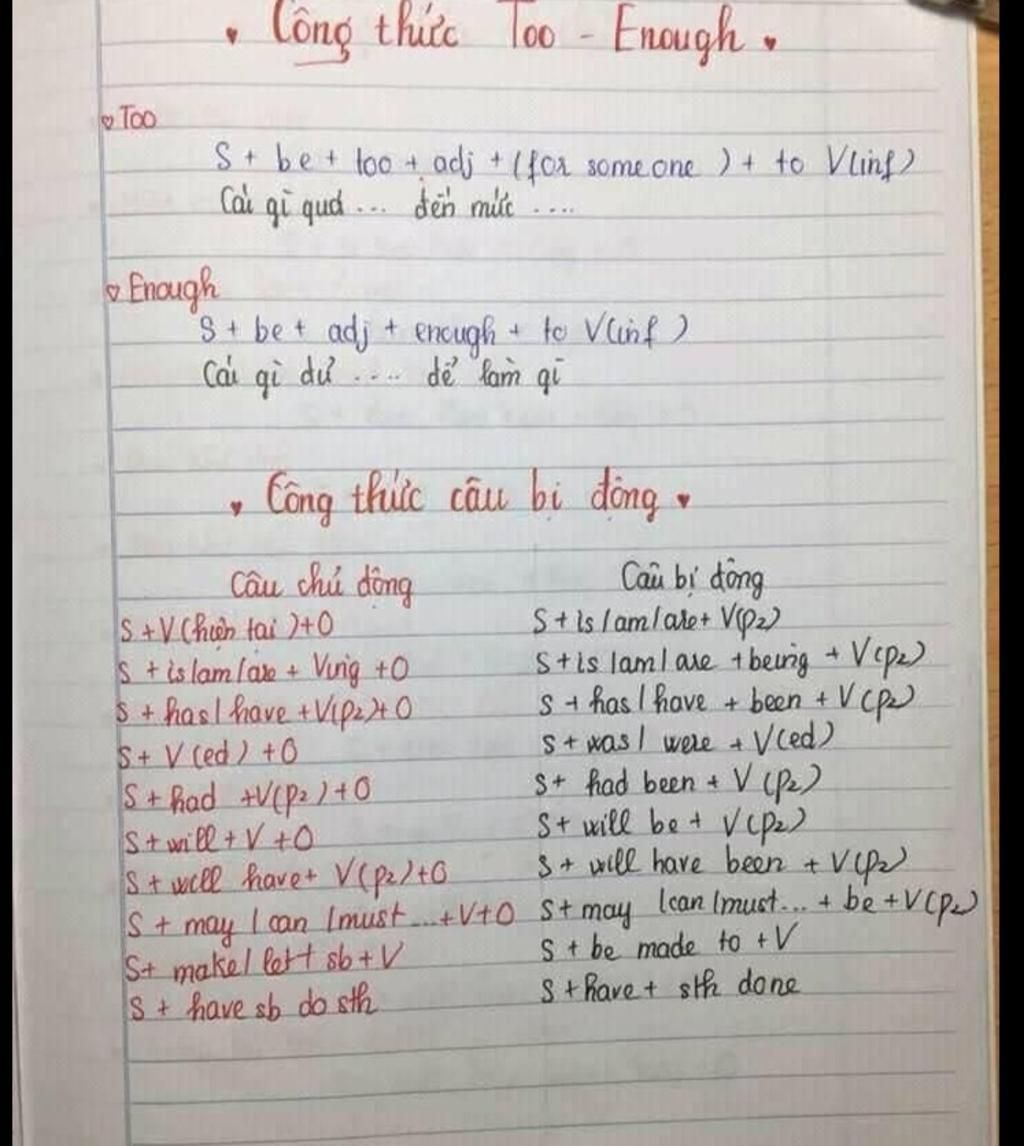 Công thức Too - Enough
Too
S + be + too + adj + (for someone) + to V(inf)
Cái gì quá ... đến mức ....
Enough
S + be + adj + enough + to V(inf)
Cái gì đủ .... để làm gì
Công thức câu bị động
Câu chủ động Câu bị động
S + V(hiện tại) + O S + is/am/are + V(p2)
S + is/am/are + Ving + O S + is/am/are + being + V(p2)
S + has/have + V(p2) + O S + has/have + been + V(p2)
S + V(ed) + O S + was/were + V(ed)
S + had + V(p2) + O S + had been + V(p2)
S + will + V + O S + will be + V(p2)
S + will have + V(p2) + O S + will have been + V(p2)
S + may/can/must ... + V + O S + may/can/must ... + be + V(p2)
S + make/let + sb + V S + be made to + V
S + have sb do sth S + have + sth done